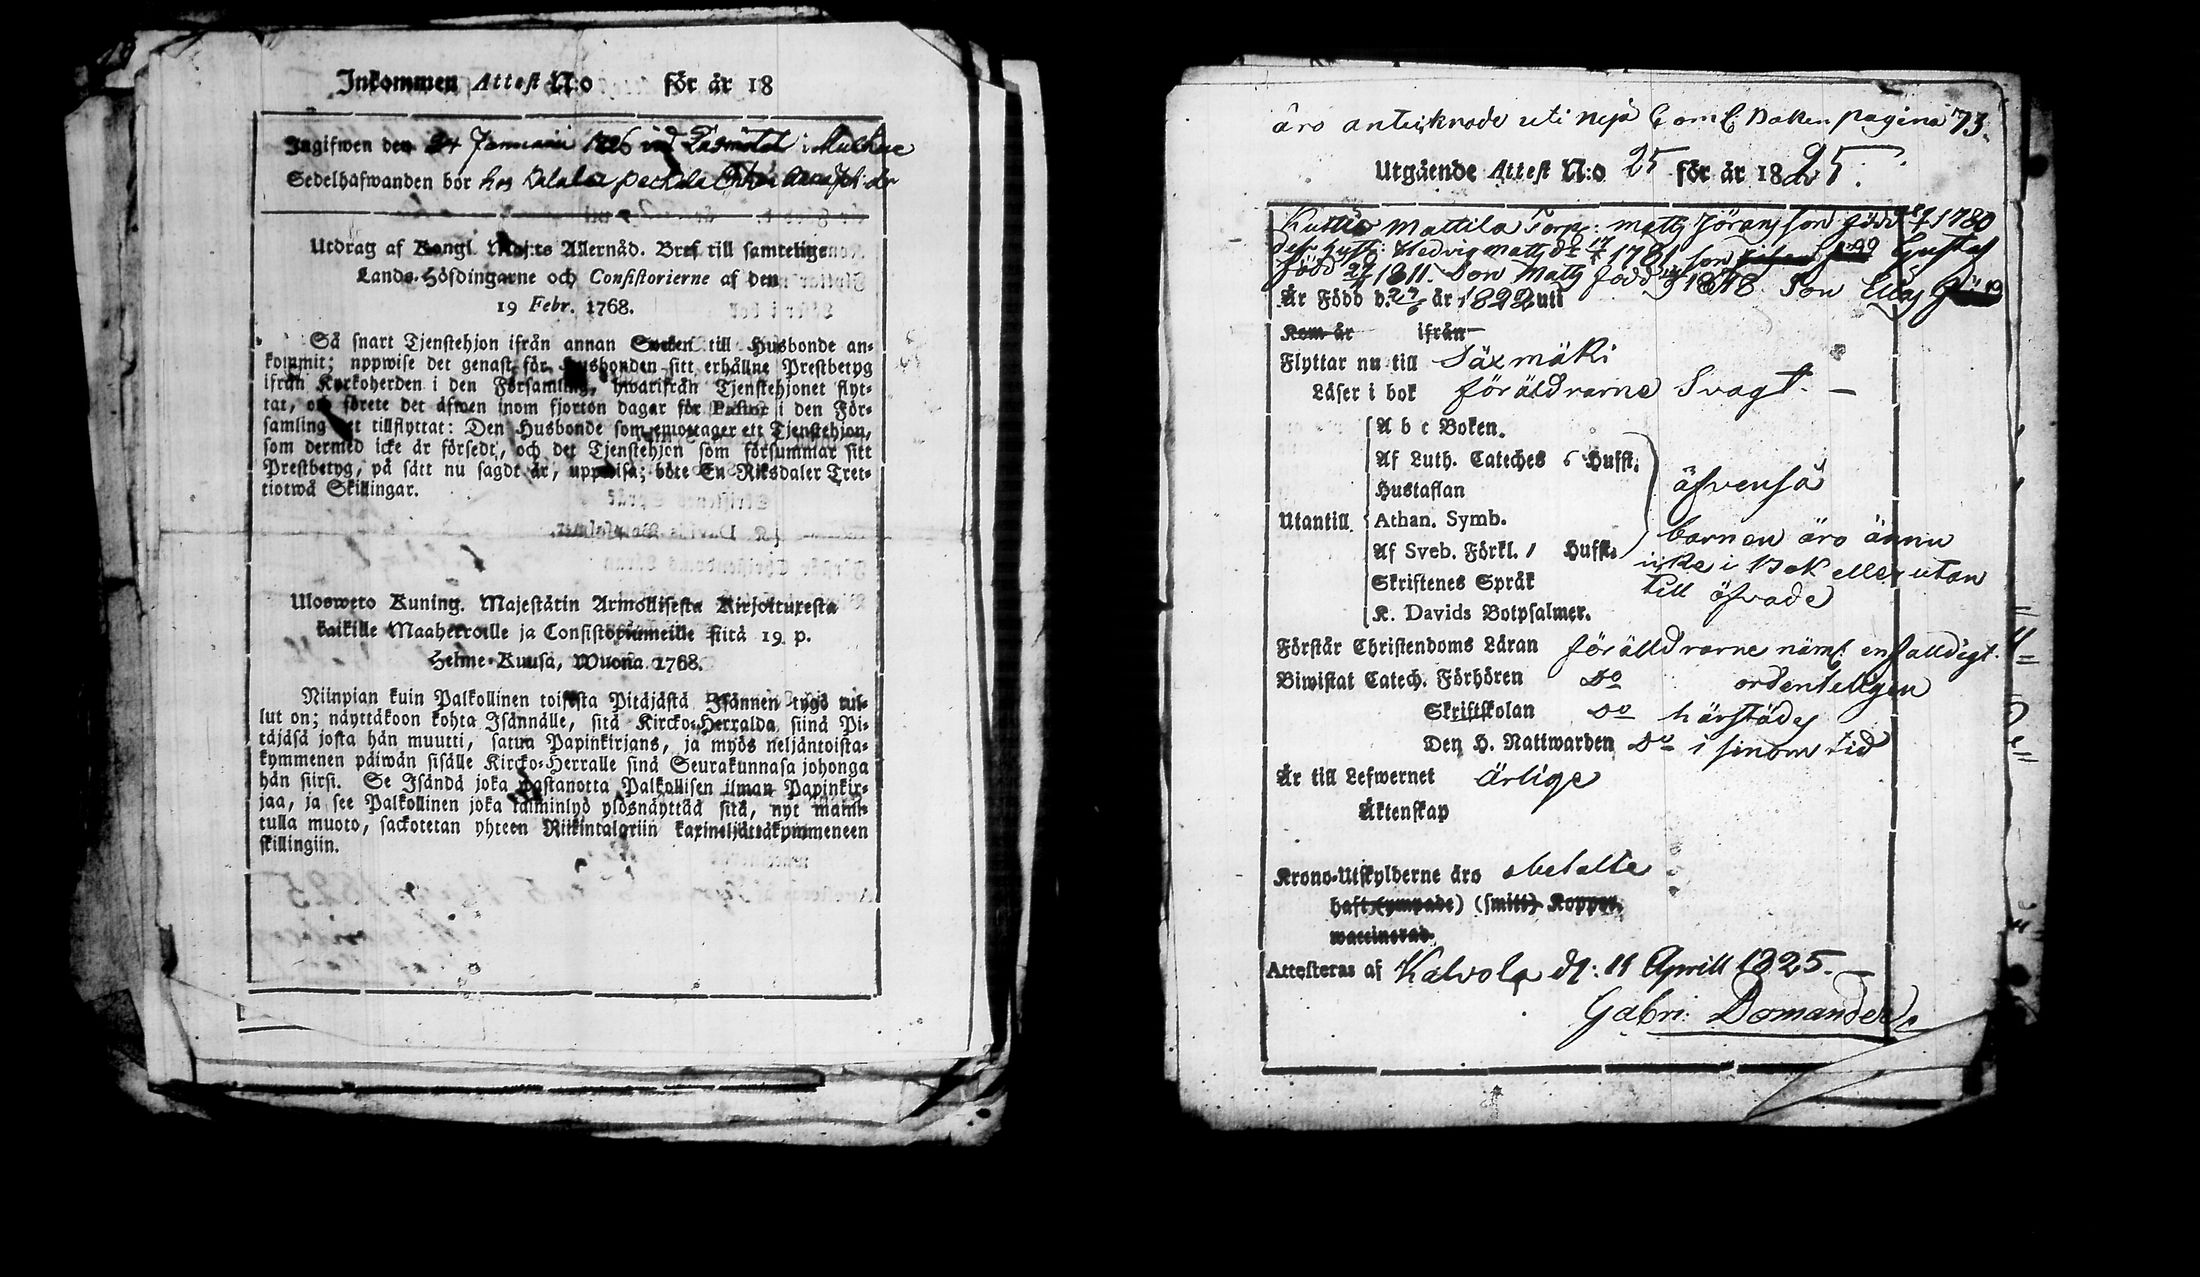 Inkommen Attest N:o för år 18
Ingifwen den 24 Januarii 1826 vid Läsmötet i
Sedelhafwanden bor hos
Utdrag af Kongl. Maj:ts Allernåd. Bref till samtelige
Lands-Höfdingarne och Consistorierne af den
19 Febr. 1768.
Så snart Tjenstehjon ifrån annan Socken till Husbonde an-
kommit; uppwise det genast för Husbonden sitt erhållne Prestbetyg
ifrån Kyrkoherden i den Församling, hwarifrån Tjenstehjonet flyt-
tat, och förete det äfwen inom fjorton dagar för Pastor i den För-
samling det tillflyttat: Den Husbonde som emottager ett Tjenstehjon,
som dermed icke är försedt, och det Tjenstehjon som försummar sitt
Prestbetyg, på sätt nu sagdt är, uppwisa; böte En Riksdaler Tret-
tiotwå Skillingar.
Uloswero Kuning. Majestätin Armollisesta Kirjoituxesta
kaikille Maaherroille ja Consistoriumeille siitä 19 p.
Helme-Kuusa, Wuona 1768.
Niinpian kuin Palkollinen toisesta Pitäjästä Isännen tygö tul-
lut on; näyttäkoon kohta Isännälle, sitä Kircko-Herralda siinä Pi-
täjäsä josta hän muutti, satua Papinkirjans, ja myös neljäntoista-
kymmenen päiwän sisälle Kircko-Herralle sinä Seurakunnasa johonga
hän siirsi. Se Isändä joka wastanotta Palkollisen ilman Papinkir-
jaa, ja see Palkollinen joka laiminlyö ylösnäyttää sitä, nyt maini-
tulla muoto, sackotetan yhteen Riikintalariin kaxineljättäkymmeneen
skillingiin.
äro antecknade uti nya Boken pagina 73.
Utgående Attest N:o 25 för år 1825.
Mattila Torp: Matts Göransson född 1780
dess hustr: Hedvig Mattsdr 17 1781 son Gustaf
född 1811. Son Matts född 1818 Son Elias
Är Född d. 27 år 1822 uti
Kom år ifrån
Flyttar nu till Säxmäki
Läser i bok föräldrarne Svagt. —
A b c Boken.
Af Luth. Cateches 6 Hufst.
Hustaflan
äfvenså
Utantill Athan. Symb.
Af Sveb. Förkl. 1 Hufst.
barnen äro ännu
icke i Bok eller utan
till öfvade
Skriftenes Språk
K. Davids Botpsalmer.
Förstår Christendoms Läran föräldrarne näml. enfalldigt.
Biwistat Catech. Förhören Do ordenteligen
Skriftskolan Do härstädes
Den H. Nattwarden Do i sinom tid
Är till Lefwernet ärlige
Äktenskap
Krono-Utskylderne äro obetalte
haft (ympade) (smitt) Koppor,
waccinerad.
Attesteras af Kalvola d. 11 Aprill 1825.
Gabri: Domander